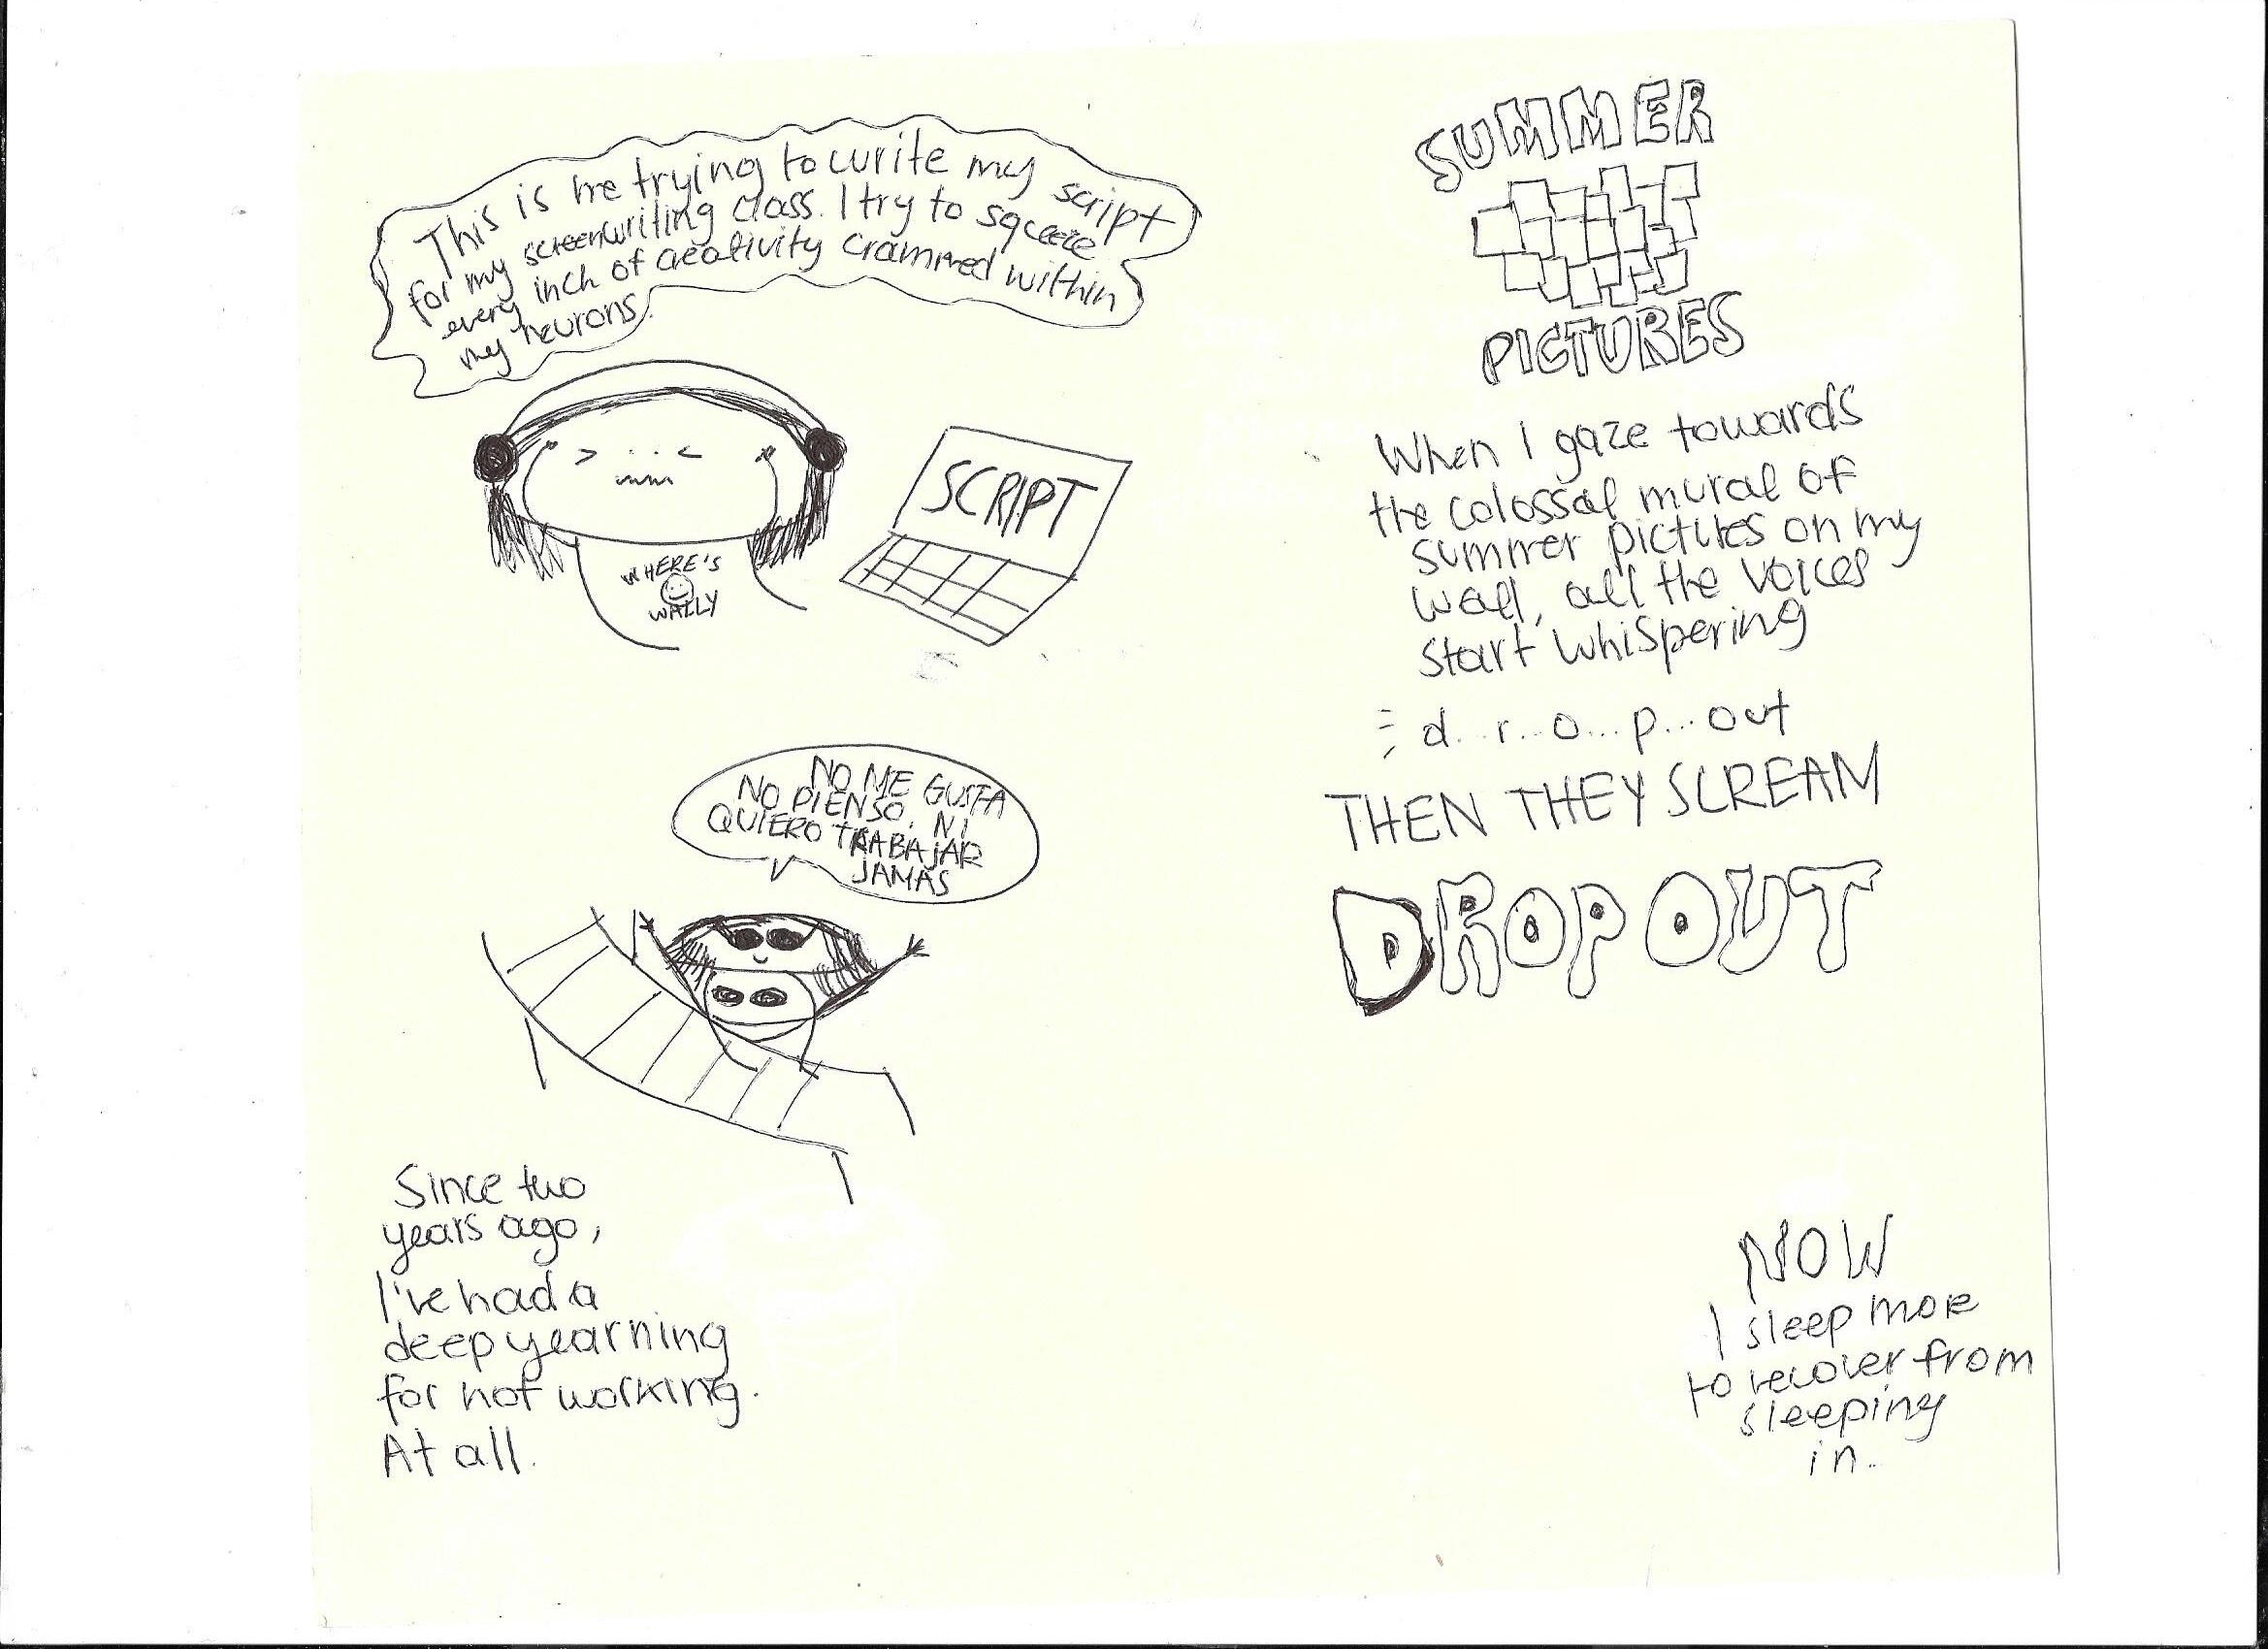 This is me trying to write my script
for my screenwriting class. I try to squeeze
every inch of creativity crammed within
my neurons.
SCRIPT
WHERE'S
WALLY
NO ME GUSTA
NO PIENSO, NI
QUIERO TRABAJAR
JAMAS
Since two
years ago,
I've had a
deep yearning
for not working.
At all.
SUMMER
PICTURES
When I gaze towards
the colossal mural of
summer pictures on my
wall, all the voices
start whispering
d...r...o...p...out
THEN THEY SCREAM
DROP OUT
NOW
I sleep more
to recover from
sleeping
in.